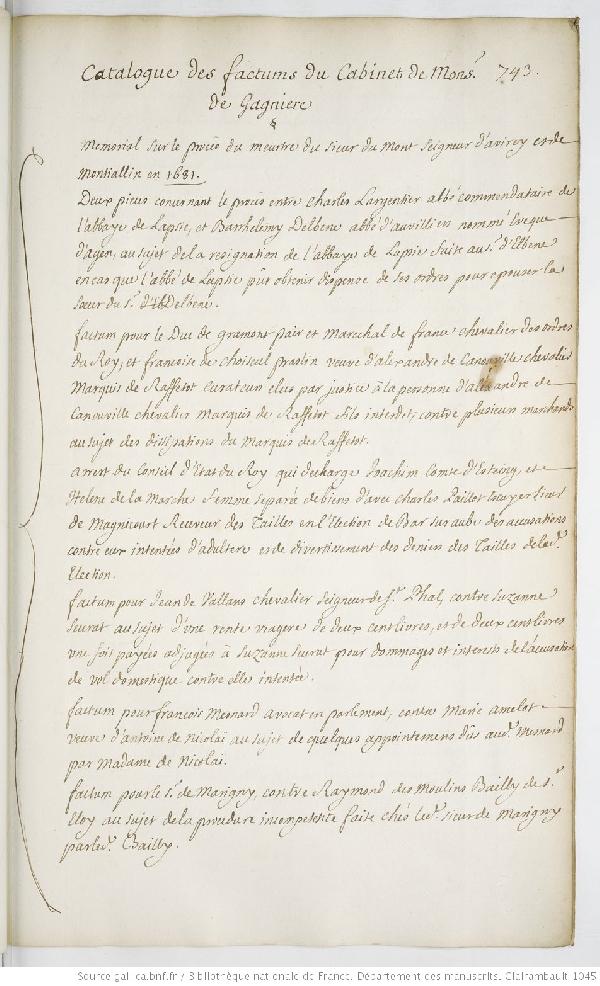 Catalogue des factums du Cabinet de Mons.r 743.
de Gagniere
Memorial sur le procés du meurtre du sieur du Mont Seigneur d'avirey et de
Montiallin en 1681.
Deux pieces concernant le procés entre Charles Largentier abbé commendataire de
l'abbaye de Lapsie, et Barthelemy Delbene abbé d'auvilliers nommé Evêque
d'agen, au sujet de la resignation de l'abbaye de Lapsie faite au s.r d'Elbene
en cas que l'abbé de Lapsie pût obtenir dispence de ses ordres pour epouser la
sœur du s.r Delbene.
factum pour le Duc de gramont pair et Marechal de france chevalier des ordres
du Roy, et francoise de choiseul praslin veuve d'alexandre de Canouville chevalier
Marquis de Raffetot curateurs elus par justice à la personne d'alexandre de
Canouville chevalier Marquis de Raffetot fils interdit, contre plusieurs marchands
au sujet des dissipations du Marquis de Raffetot.
arrest du Conseil d'Etat du Roy qui decharge Joachim Comte d'Estaing, et
Helene de la Marche femme separée de biens d'avec charles Paillot
de Magnicourt Receveur des Tailles en l'Election de Bar sur aube des accusations
contre eux intentées d'adultere et de divertissement des deniers des Tailles de lad.e
Election.
factum pour Jean de Vallans chevalier seigneur de s.t Phal, contre suzanne
seurat au sujet d'une rente viagere de deux cens livres, et de deux cens livres
une fois payées adjugées à suzanne seurat pour dommages et interests de l'accusation
de vol domestique contre elle intentée.
factum pour francois Mesnard avocat en parlement, contre Marie amelot
veuve d'antoine de Nicolai au sujet de quelques appointemens dûs aud.t Mesnard
par Madame de Nicolai.
factum pour le s.r de Marigny, contre Raymond des Moulins Bailly de s.t
Eloy au sujet de la procedure incompetente faite chés led.t sieur de Marigny
par led.t Bailly.
Source gallica.bnf.fr / Bibliothèque nationale de France. Département des manuscrits. Clairambault 1045